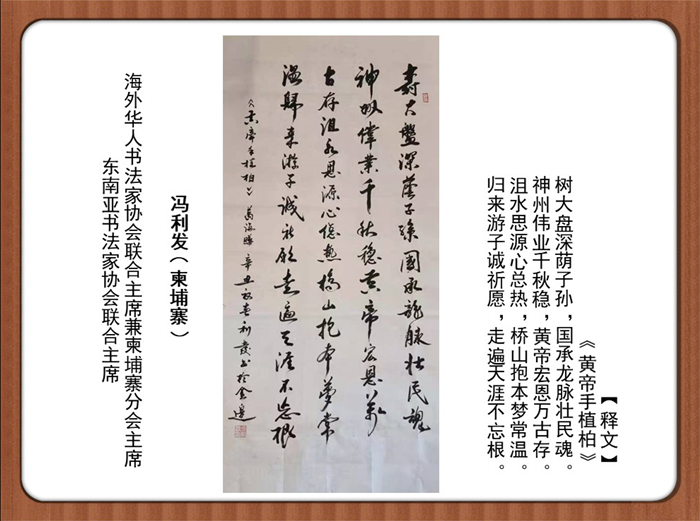 【释文】
《黄帝手植柏》
树大盘深荫子孙，国承龙脉壮民魂。
神州伟业千秋稳，黄帝宏恩万古存。
沮水思源心总热，桥山抱本梦常温。
归来游子诚祈愿，走遍天涯不忘根。
大盤深蔭子孫國承龍脉壯民魂
神州偉業千秋穩黄帝宏恩萬
古存沮水思源心總熱橋山抱本夢常
温歸来游子誠祈願走遍天涯不忘根
《黄帝手植柏》辛丑初春利發书於金邊
冯利发（柬埔寨）
海外华人书法家协会联合主席兼柬埔寨分会主席
东南亚书法家协会联合主席